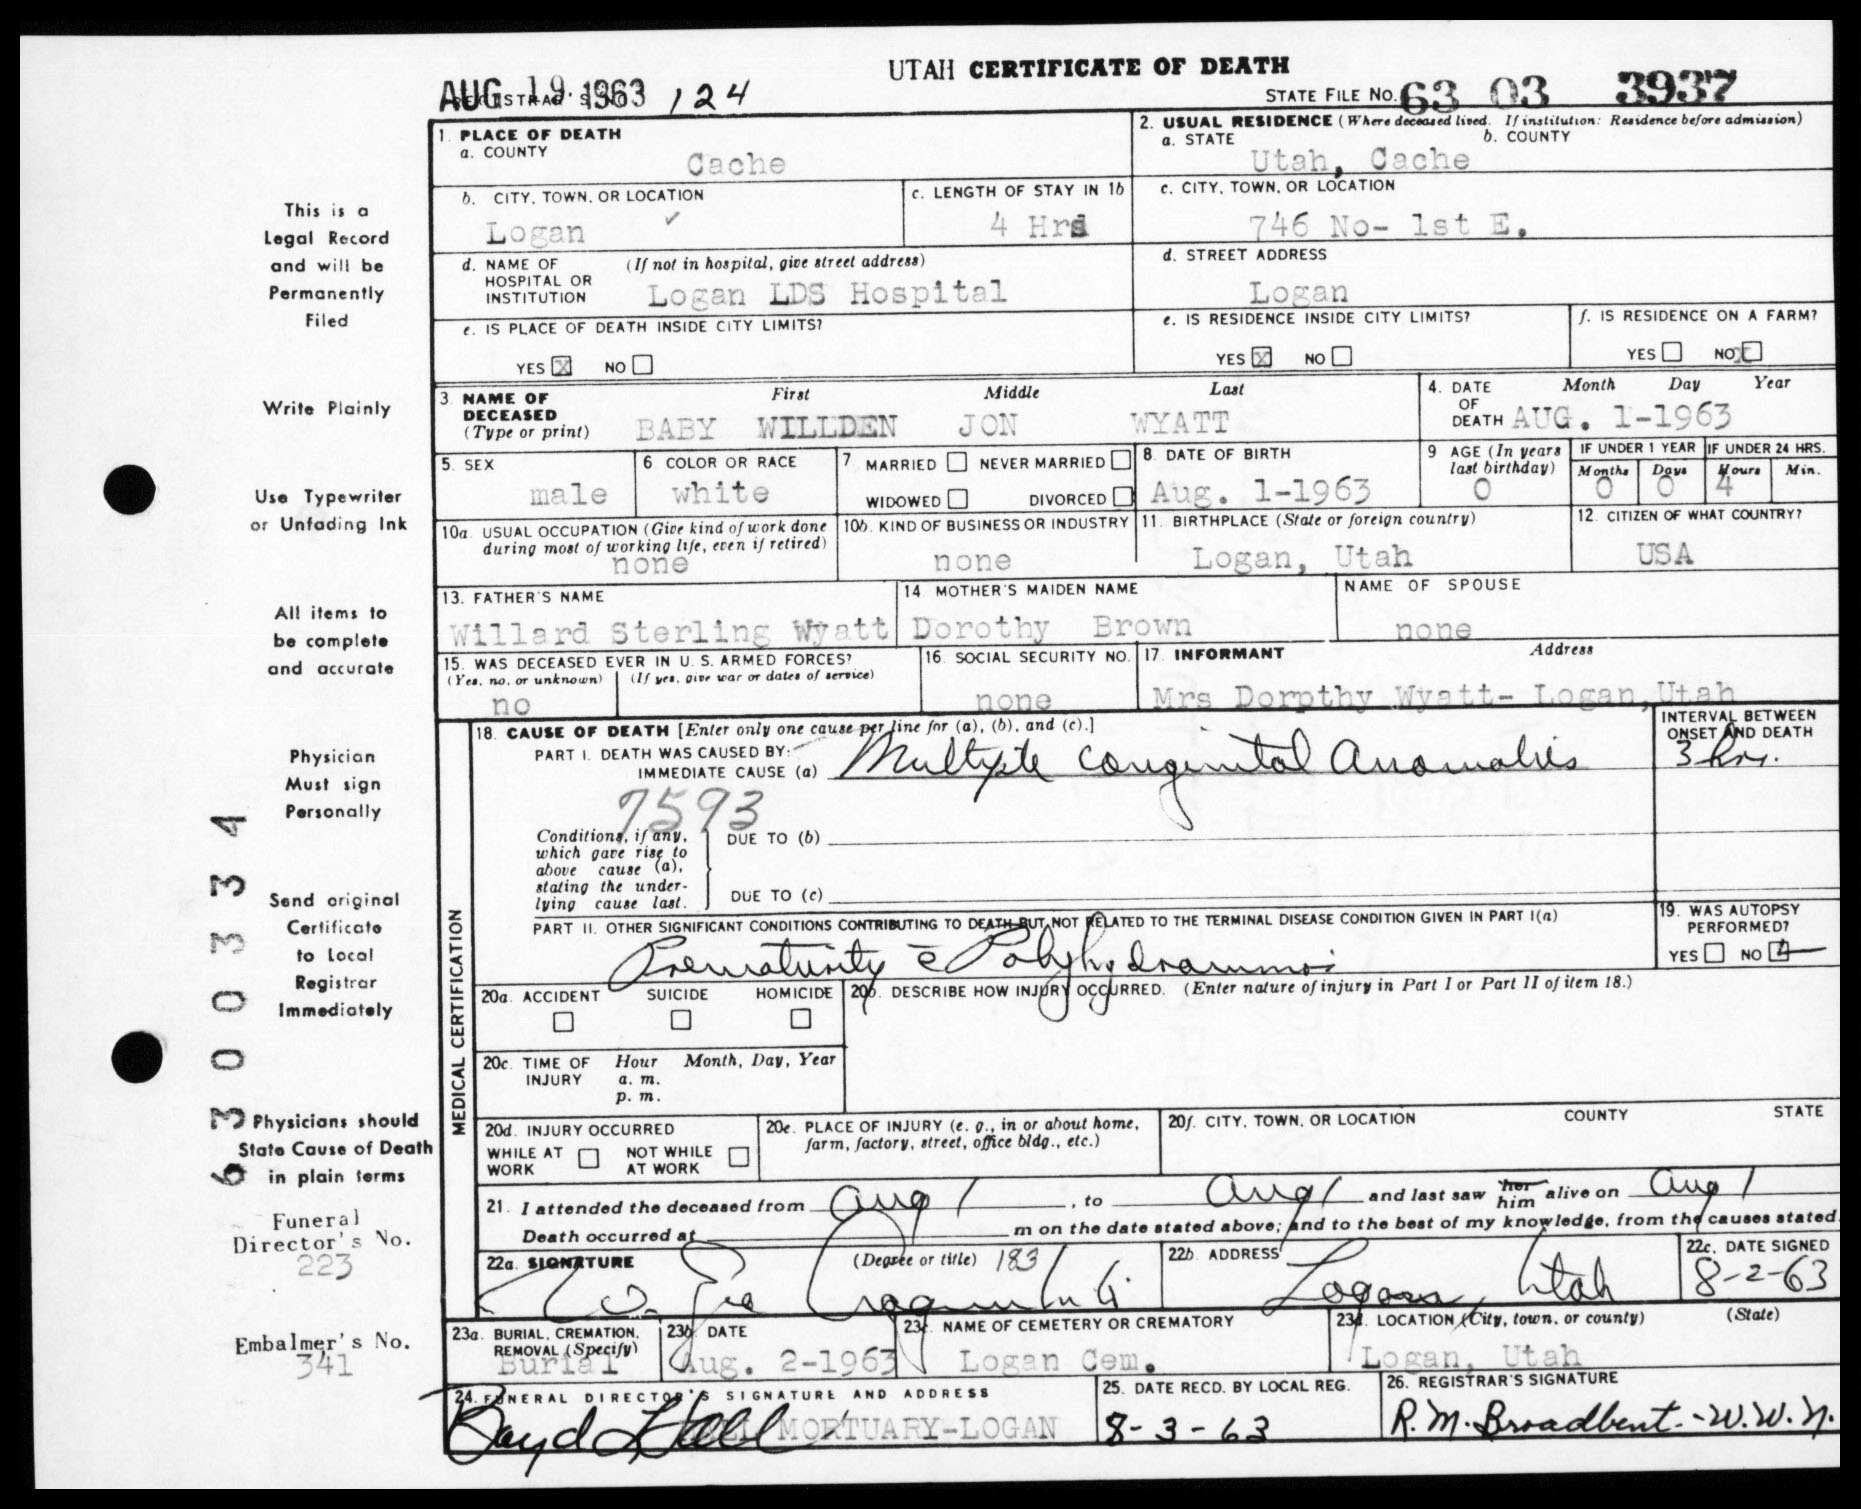 UTAH CERTIFICATE OF DEATH
AUG 19 1963 124
REGISTRAR'S NO.
STATE FILE NO. 63 03 3937
1. PLACE OF DEATH
a. COUNTY
Cache
2. USUAL RESIDENCE (Where deceased lived. If institution: Residence before admission)
a. STATE b. COUNTY
Utah, Cache
b. CITY, TOWN, OR LOCATION
Logan ✓
c. LENGTH OF STAY IN 1b
4 Hrs
c. CITY, TOWN, OR LOCATION
746 No- 1st E.
d. NAME OF HOSPITAL OR INSTITUTION (If not in hospital, give street address)
Logan LDS Hospital
d. STREET ADDRESS
Logan
e. IS PLACE OF DEATH INSIDE CITY LIMITS?
YES X NO
e. IS RESIDENCE INSIDE CITY LIMITS?
YES X NO
f. IS RESIDENCE ON A FARM?
YES NO X
3. NAME OF DECEASED (Type or print)
First Middle Last
BABY WILLDEN JON WYATT
4. DATE OF DEATH
Month Day Year
AUG. 1-1963
5. SEX
male
6. COLOR OR RACE
white
7. MARRIED NEVER MARRIED
WIDOWED DIVORCED
8. DATE OF BIRTH
Aug. 1-1963
9. AGE (In years last birthday)
0
IF UNDER 1 YEAR
Months Days
0 0
IF UNDER 24 HRS.
Hours Min.
4
10a. USUAL OCCUPATION (Give kind of work done during most of working life, even if retired)
none
10b. KIND OF BUSINESS OR INDUSTRY
none
11. BIRTHPLACE (State or foreign country)
Logan, Utah
12. CITIZEN OF WHAT COUNTRY?
USA
13. FATHER'S NAME
Willard Sterling Wyatt
14. MOTHER'S MAIDEN NAME
Dorothy Brown
NAME OF SPOUSE
none
15. WAS DECEASED EVER IN U. S. ARMED FORCES?
(Yes, no, or unknown) (If yes, give war or dates of service)
no
16. SOCIAL SECURITY NO.
none
17. INFORMANT Address
Mrs Dorpthy Wyatt- Logan, Utah
MEDICAL CERTIFICATION
18. CAUSE OF DEATH [Enter only one cause per line for (a), (b), and (c).]
PART I. DEATH WAS CAUSED BY:
IMMEDIATE CAUSE (a) Multiple Congenital Anomalies
INTERVAL BETWEEN ONSET AND DEATH
3 hrs.
7593
Conditions, if any, which gave rise to above cause (a), stating the underlying cause last.
DUE TO (b)
DUE TO (c)
PART II. OTHER SIGNIFICANT CONDITIONS CONTRIBUTING TO DEATH BUT NOT RELATED TO THE TERMINAL DISEASE CONDITION GIVEN IN PART I(a)
Prematurity c̄ Polyhydramnios
19. WAS AUTOPSY PERFORMED?
YES NO
20a. ACCIDENT SUICIDE HOMICIDE
20b. DESCRIBE HOW INJURY OCCURRED. (Enter nature of injury in Part I or Part II of item 18.)
20c. TIME OF INJURY Hour a. m. p. m. Month, Day, Year
20d. INJURY OCCURRED
WHILE AT WORK NOT WHILE AT WORK
20e. PLACE OF INJURY (e. g., in or about home, farm, factory, street, office bldg., etc.)
20f. CITY, TOWN, OR LOCATION COUNTY STATE
21. I attended the deceased from Aug 1, to Aug 1 and last saw her him alive on Aug 1
Death occurred at m on the date stated above; and to the best of my knowledge, from the causes stated.
22a. SIGNATURE (Degree or title) 183
22b. ADDRESS
Logan, Utah
22c. DATE SIGNED
8-2-63
23a. BURIAL, CREMATION, REMOVAL (Specify)
Burial
23b. DATE
Aug. 2-1963
23c. NAME OF CEMETERY OR CREMATORY
Logan Cem.
23d. LOCATION (City, town, or county) (State)
Logan, Utah
24. FUNERAL DIRECTOR'S SIGNATURE AND ADDRESS
Boyd Hall HALL MORTUARY-LOGAN
25. DATE RECD. BY LOCAL REG.
8-3-63
26. REGISTRAR'S SIGNATURE
R. M. Broadbent.-W.W.N.
This is a
Legal Record
and will be
Permanently
Filed
Write Plainly
Use Typewriter
or Unfading Ink
All items to
be complete
and accurate
Physician
Must sign
Personally
Send original
Certificate
to Local
Registrar
Immediately
Physicians should
State Cause of Death
in plain terms
Funeral
Director's No.
223
Embalmer's No.
341
6300334